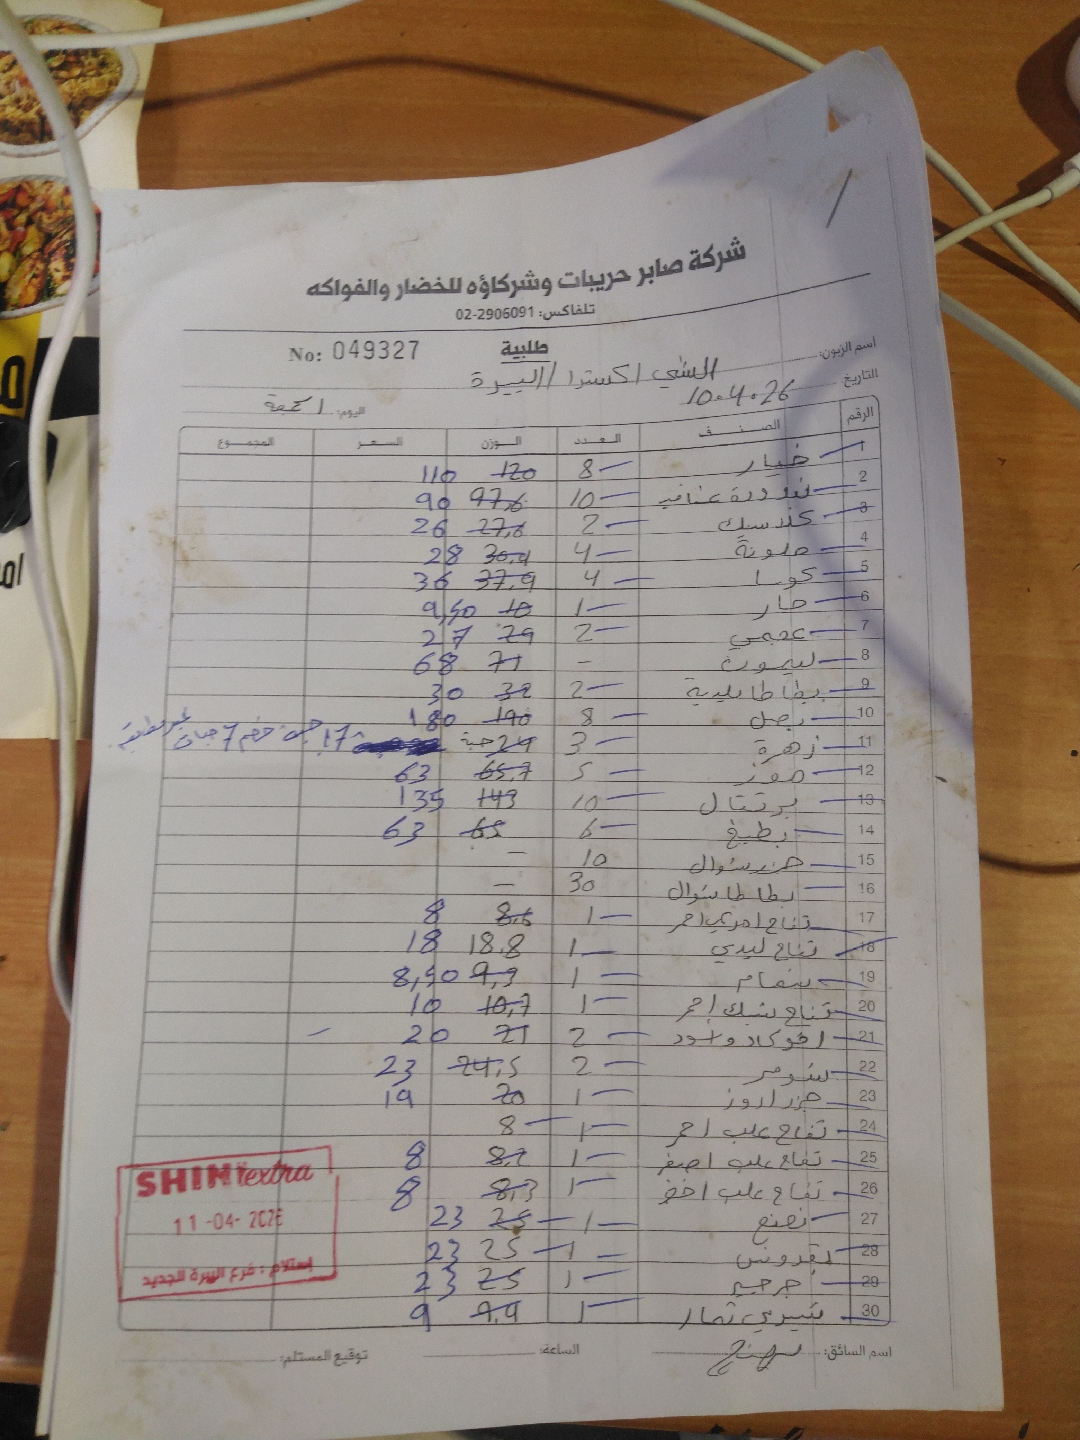 شركة صابر حريبات وشركاؤه للخضار والفواكه
تلفاكس: 02-2906091
No: 049327
طلبية
اسم الزبون: الشني اكسترا / البيرة
التاريخ: 10.4.26
اليوم: الجمعة
الرقم الصنف العدد الوزن السعر المجموع
1 خيار 8 120 110
2 بندورة عناقيد 10 97,6 90
3 كلاسيك 2 27,6 26
4 ملونة 4 30,4 28
5 كوسا 4 37,9 36
6 حار 1 10 9,50
7 عجمي 2 29 27
8 ليمون - 71 68
9 بطاطا بلدية 2 32 30
10 بصل 8 190 180
11 زهرة 3 24 حبة 17
12 موز 5 65,7 63
13 برتقال 10 143 135
14 بطيخ 6 65 63
15 جزر شوال 10 -
16 بطاطا شوال 30 -
17 تفاح احمر 1 8,6 8
18 تفاح ليدي 1 18,8 18
19 شمام 1 9,9 8,50
20 تفاح احمر 1 10,7 10
21 افوكادو اسود 2 21 20 -
22 شومر 2 24,5 23
23 جزر 1 20 19
24 تفاح علب احمر 1 8
25 تفاح علب اصفر 1 8,2 8
26 تفاح علب اخضر 1 8,3 8
27 نعنع 1 25 23
28 بقدونس 1 25 23
29 جرجير 1 25 23
30 شيري تمار 1 9,9 9
SHINI extra
11-04-2026
إستلام: فرع البيرة الجديد
اسم السائق:
الساعة:
توقيع المستلم: